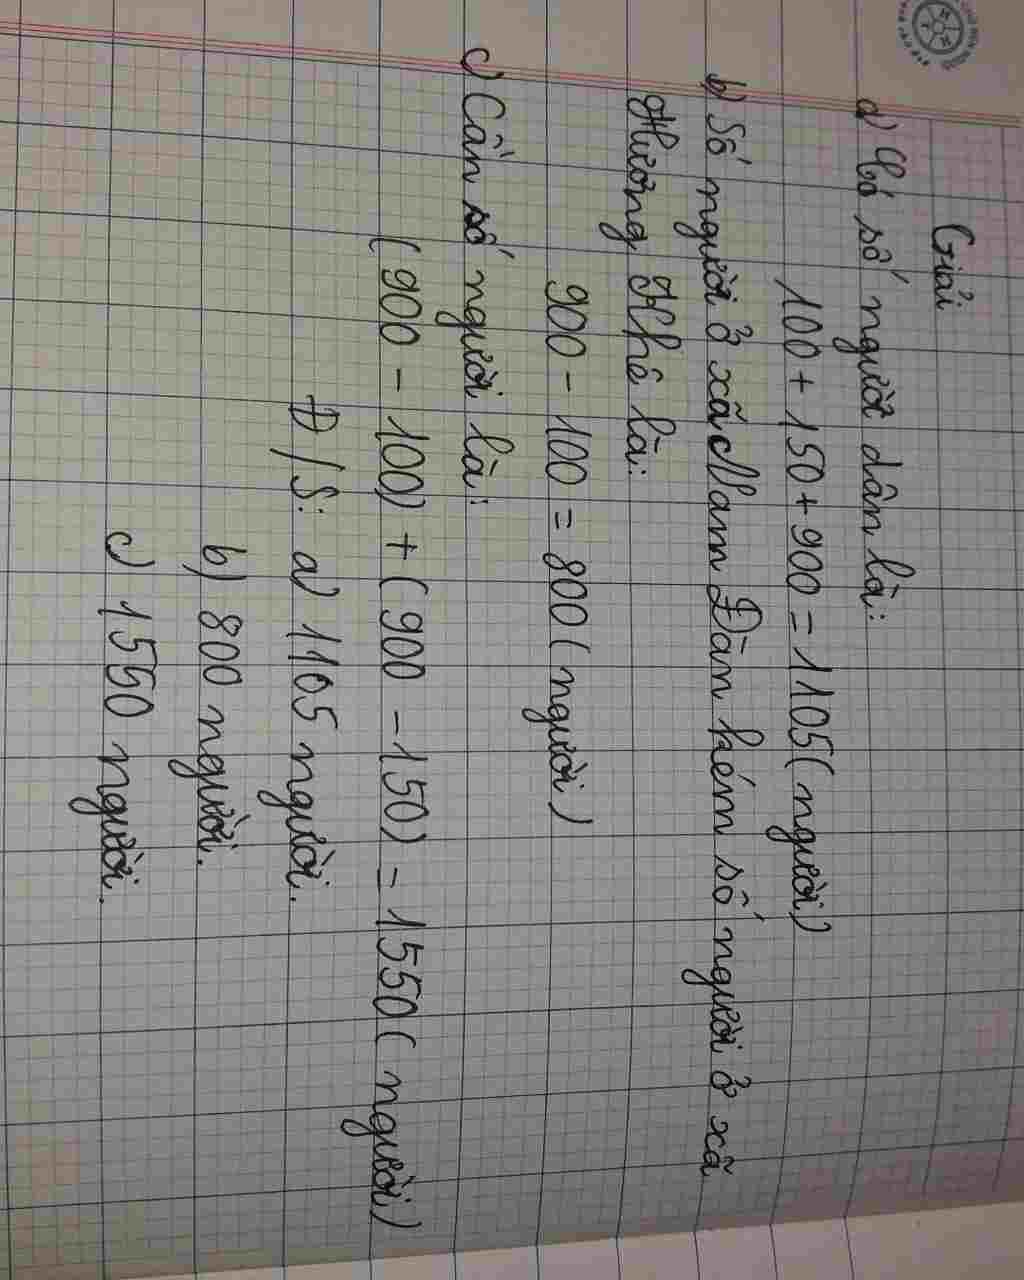 Giải
a) Có số người dân là:
100 + 150 + 900 = 1105 (người)
b) Số người ở xã Nam Đàn kém số người ở xã
Hương Khê là:
900 - 100 = 800 (người)
c) Cần số người là:
(900 - 100) + (900 - 150) = 1550 (người)
Đ/S: a) 1105 người.
b) 800 người.
c) 1550 người.